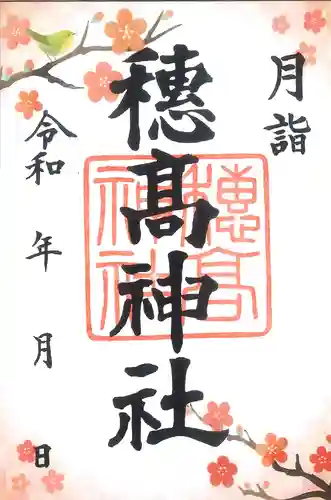 月詣
穂髙神社
令和 年 月 日
穂髙
神社